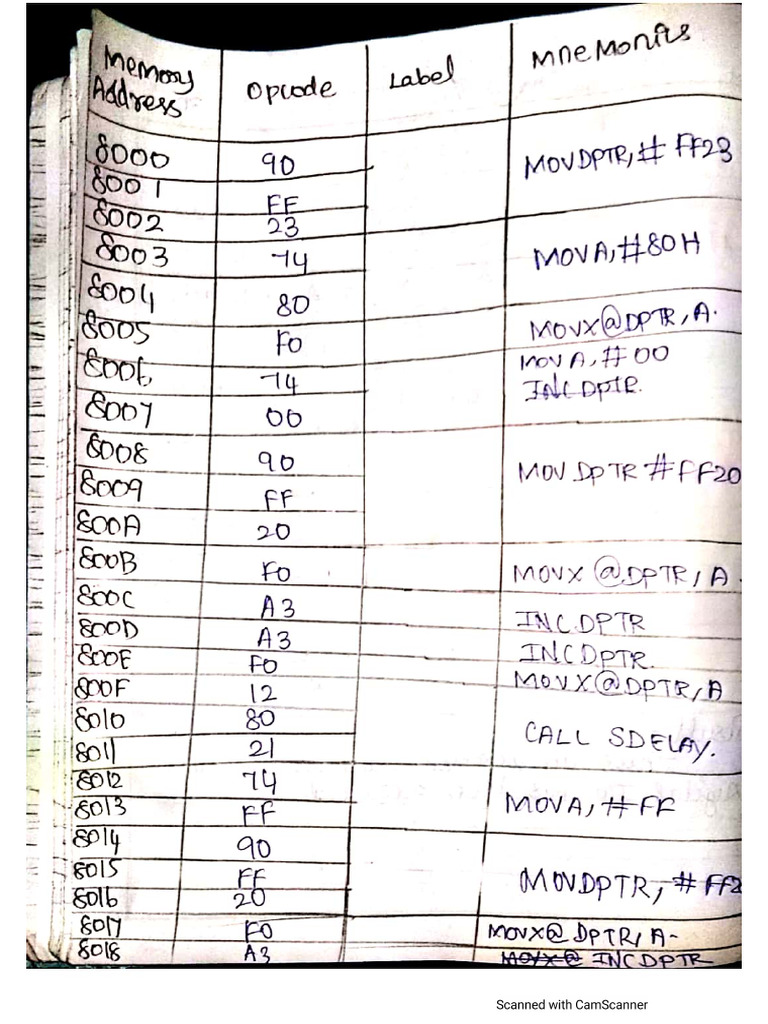 Memory Address Opcode Label Mnemonics
8000 90 MOV DPTR, # FF23
8001 FF
8002 23
8003 74 MOV A, #80H
8004 80
8005 F0 MOVX @DPTR, A.
8006 74 MOV A, # 00
8007 00 INC DPTR.
8008 90 MOV DPTR #FF20
8009 FF
800A 20
800B F0 MOVX @DPTR, A.
800C A3 INC DPTR
800D A3 INC DPTR.
800E F0 MOVX @DPTR, A
800F 12 CALL SDELAY.
8010 80
8011 21
8012 74 MOV A, # FF
8013 FF
8014 90 MOV DPTR, # FF2
8015 FF
8016 20
8017 F0 MOVX @ DPTR, A-
8018 A3 MOVX @ INC DPTR
Scanned with CamScanner